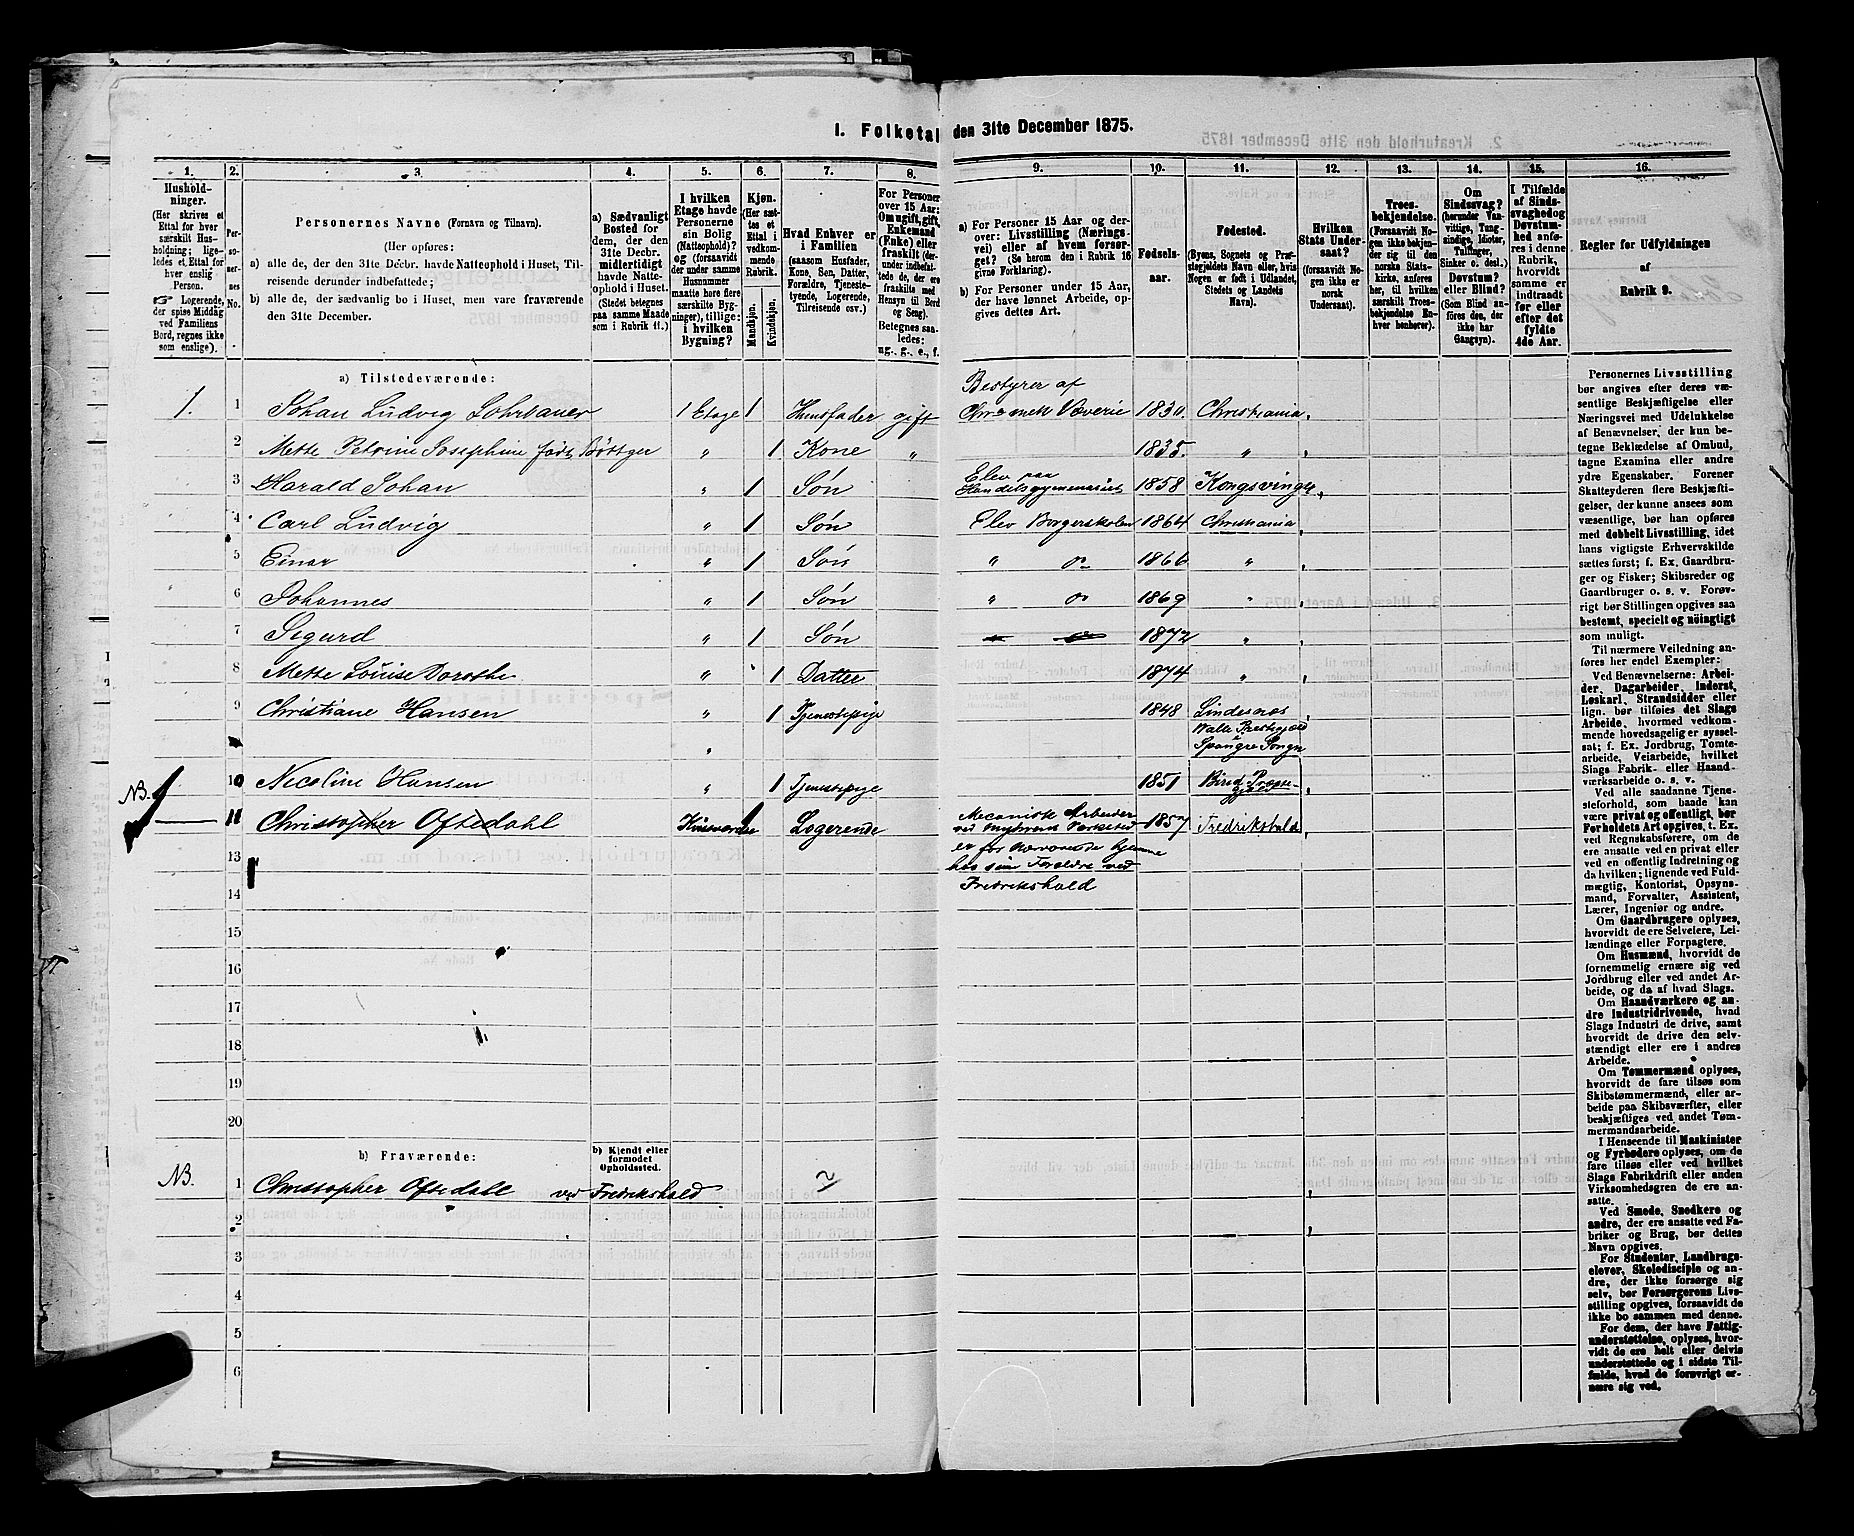 1. Folketal den 31te December 1875.
1. 2. 3. 4. 5. 6. 7. 8. 9. 10. 11. 12. 13. 14. 15. 16.
Hushold-
ninger.
(Her skrives et
Ettal for hver
særskilt Hus-
holdning; lige-
ledes et Ettal
for hver
enslig
Person.
Logerende,
der spise Middag
ved Familiens
Bord, regnes ikke
som enslige).
Per-
so-
ner-
nes
No.
Personernes Navne (Fornavn og Tilnavn).
(Her opføres:
a) alle de, der den 31te Decbr. havde Natteophold i Huset, Til-
reisende derunder indbefattede;
b) alle de, der sædvanlig bo i Huset, men vare fraværende
den 31te December.
a) Sædvanligt
Bosted for
dem, der den
31te Decbr.
midlertidigt
havde Natte-
ophold i Huset.
(Stedet betegnes
paa samme Maade
som i Rubrik 11.)
I hvilken
Etage havde
Personerne
sin Bolig
(Natteophold)?
og (forsaavidt
der under samme
Husnummer
maatte høre flere
særskilte Byg-
ninger), tillige:
i hvilken
Bygning?
Kjøn.
(Her sæt-
tes et
Ettal i
vedkom-
mende
Rubrik.
Mandkjøn.
Kvindekjøn.
Hvad Enhver er
i Familien
(saasom Husfader,
Kone, Søn, Datter,
Forældre, Tjeneste-
tyende, Logerende,
Tilreisende osv.)
For Personer
over 15 Aar:
Om ugift, gift,
Enkemand
(Enke) eller
fraskilt
(der-
under indbefat-
tede de, der ere
fraskilte med
Hensyn til Bord
og Seng).
Betegnes saa-
ledes:
ug., g., e., f.
a) For Personer 15 Aar og der-
over: Livsstilling (Nærings-
vei) eller af hvem forsør-
get? (Se herom den i Rubrik 16
givne Forklaring).
b) For Personer under 15 Aar,
der have lønnet Arbeide, op-
gives dettes Art.
Fødsels-
aar.
Fødested.
(Byens, Sognets og Præ-
stegjeldets Navn eller, hvis
Nogen er født i Udlandet,
Stedets og Landets
Navn).
Hvilken
Stats Under-
saat?
(forsaavidt No-
gen ikke er
norsk
Undersaat).
Troes-
bekjendelse.
(Forsaavidt No-
gen ikke bekjen-
der sig til den
norske Stats-
kirke, anføres
her, til hvilken
særskilt Troes-
bekjendelse En-
hver henhører).
Om
Sindssvag?
(herunder Van-
vittige, Tung-
sindige, Idioter,
Tullinger,
Sinker o. desl.)
Døvstum?
eller Blind?
(Som Blind an-
føres den, der
ikke har
Gangsyn).
I Tilfælde
af Sinds-
svaghed og
Døvstum-
hed anfø-
res i denne
Rubrik,
hvorvidt
samme er
indtraadt
før eller
efter det
fyldte
4de Aar.
Regler for Udfyldningen
af
Rubrik 9.
a) Tilstedeværende:
1. 1 Johan Ludvig Lohrbauer 1 Etage 1 Huusfader gift Bestyrer af Chr. mek Væverie 1830. Christiania
2 Mette Petrine Josephine født Bøttger " 1 Kone " 1835. "
3 Harald Johan " 1 Søn Elev paa Handelsgymnasiet 1858 Kongsvinger
4 Carl Ludvig " 1 Søn Elev Borgerskolen 1864 Christiania
5 Einar " 1 Søn " 1866 "
6 Johannes " 1 Søn " 1869 "
7 Sigurd " 1 Søn 1872 "
8 Mette Louise Dorothe " 1 Datter 1874 "
9 Christiane Hansen " 1 Tjenestepige 1848
NB. 10 Nicoline Hansen " 1 Tjenestepige 1851
11 Christopher Oftedahl 1 Logerende 1857 Fredrikshald
Fredrikshald
13
14
15
16
17
18
19
20
b) Fraværende:
b) Kjendt eller
formodet
Opholdssted.
NB. 1 Christopher Oftedahl ved Fredrikshald
2
3
4
5
6
Personernes Livsstilling
bør angives efter deres væ-
sentlige Beskjæftigelse eller
Næringsvei med Udelukkelse
af Benævnelser, der kun be-
tegne Beklædelse af Ombud,
tagne Examina eller andre
ydre Egenskaber. Forener
Skatteyderen flere Beskjæfti-
gelser, der kunne ansees som
væsentlige, bør han opføres
med dobbelt Livsstilling, idet
hans vigtigste Erhvervskilde
sættes først; f. Ex. Gaardbru-
ger og Fisker; Skibsreder og
Gaardbruger o. s. v. Forøv-
rigt bør Stillingen opgives saa
bestemt, specielt og nöingtigt
som muligt.
Til nærmere Veiledning an-
føres her endel Exempler:
Ved Benævnelserne: Arbei-
der, Dagarbeider, Inderst,
Løskarl, Strandsidder eller
lign. bør tilføies det Slags
Arbeide, hvormed vedkom-
mende hovedsagelig er syssel-
sat; f. Ex. Jordbrug, Tomte-
arbeide, Veiarbeide, hvilket
Slags Fabrik- eller Haand-
værksarbeide o. s. v.
Ved alle saadanne Tjene-
steforhold, som baade kan
være privat og offentlig, bør
Forholdets Art opgives, t. Ex.
ved Regnskabsførere, om de
ere ansatte ved en privat eller
ved en offentlig Indretning og
da hvilken; lignende ved Fuld-
mægtig, Kontorist, Opsyns-
mand, Forvalter, Assistent,
Lærer, Ingeniør og andre.
Om Gaardbrugere oplyses,
hvorvidt de ere Selveiere, Lei-
lændinge eller Forpagtere.
Om Husmænd, hvorvidt de
fornemmelig ernære sig ved
Jordbrug eller ved andet Ar-
beide, og da af hvad Slags.
Om Haandværkere og an-
dre Industridrivende, hvad
Slags Industri de drive, samt
hvorvidt de drive den selv-
stændigt eller ere i andres
Arbeide.
Om Tømmermænd oplyses,
hvorvidt de fare tilsøs som
Skibstømmermænd, eller ar-
beide paa Skibsværfter, eller
beskjæftiges ved andet Tøm-
mermandsarbeide.
I Henseende til Maskinister
og Fyrbødere oplyses, om de
fare tilsøs eller ved hvilket
Slags Fabrikdrift eller anden
Virksomhedsgren de ere an-
satte.
Ved Smede, Snedkere og
andre, der ere ansatte ved Fa-
briker og Brug, bør dettes
Navn opgives.
For Studenter, Landbrugs-
elever, Skoledisciple og an-
dre, der ikke forsørge sig
selv, bør Forsørgerens Livs-
stilling opgives, forsaavidt de
ikke bo sammen med denne.
For dem, der have Fattig-
understøttelse, oplyses, hvor-
vidt de ere helt eller delvis
understøttede og i sidste Til-
fælde, hvad de forøvrigt er-
nære sig ved.